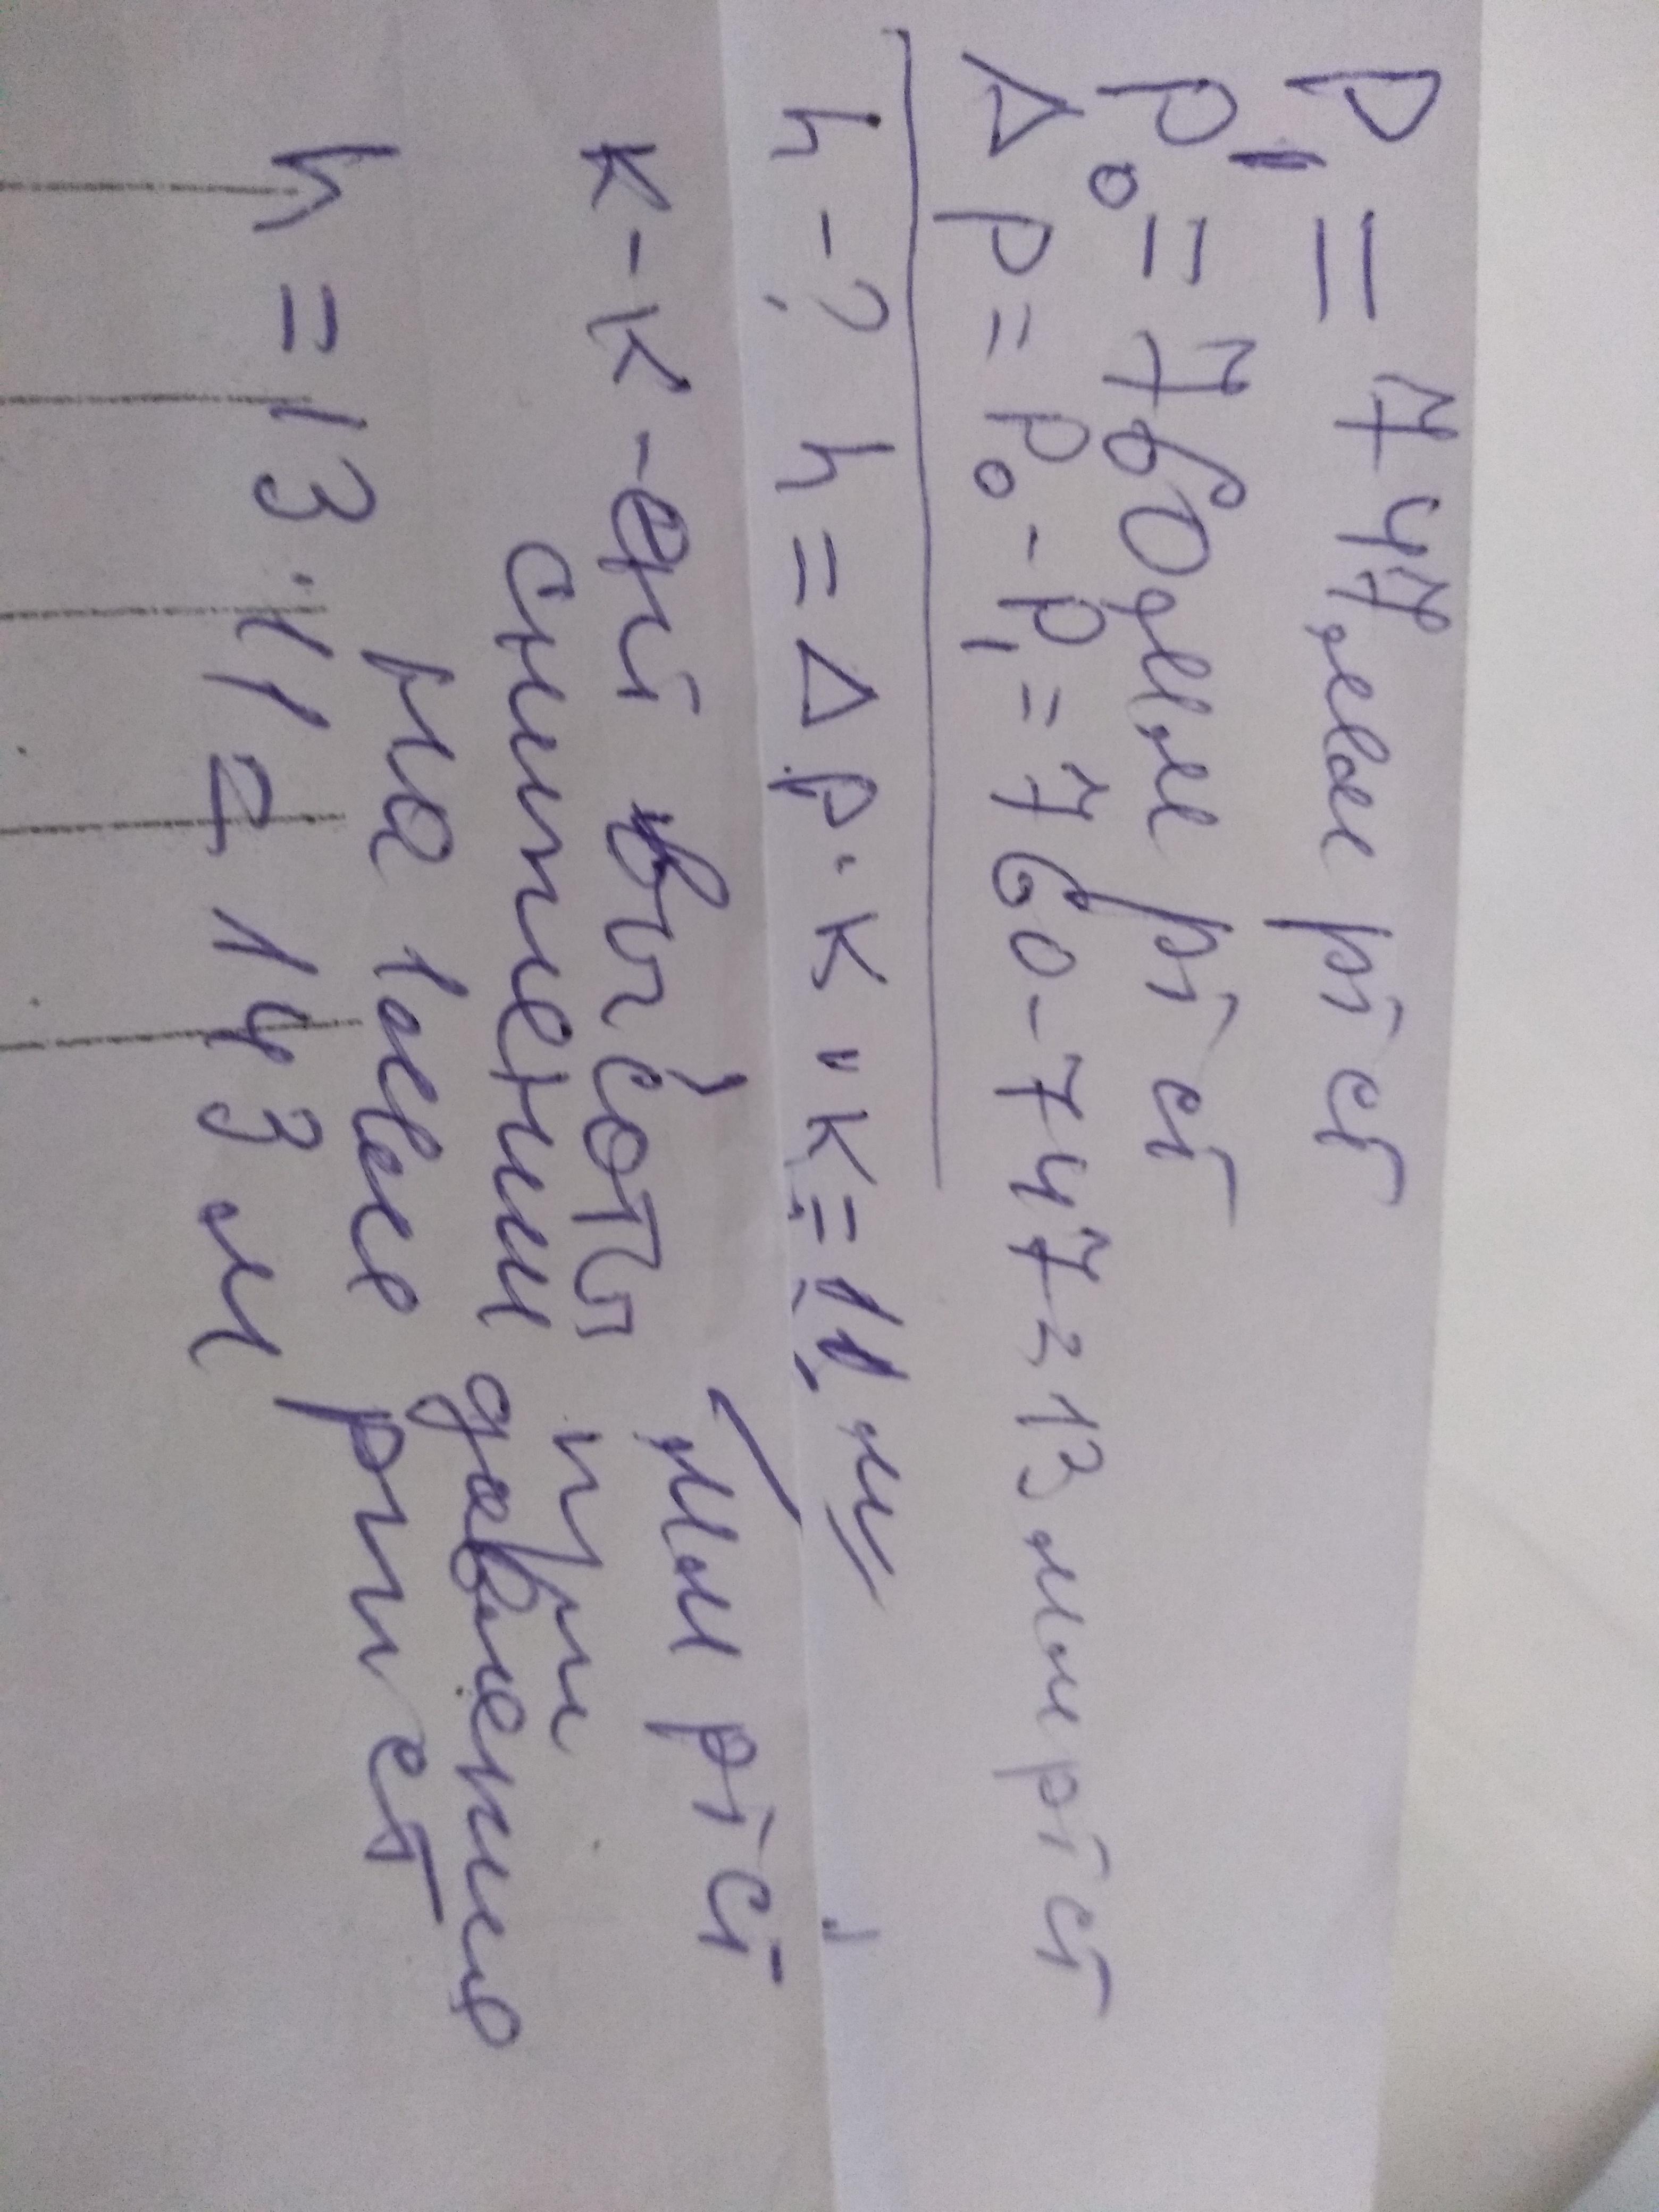 P₁ = 747 мм рт ст
P₀ = 760 мм рт ст
Δ P = P₀ - P₁ = 760 - 747 = 13 мм рт ст
h - ? h = Δ P · К " К = 11 м/
мм рт ст
К - К - ент высоты при
снижении давление
на 1 мм рт ст
h = 13 · 11 = 143 м